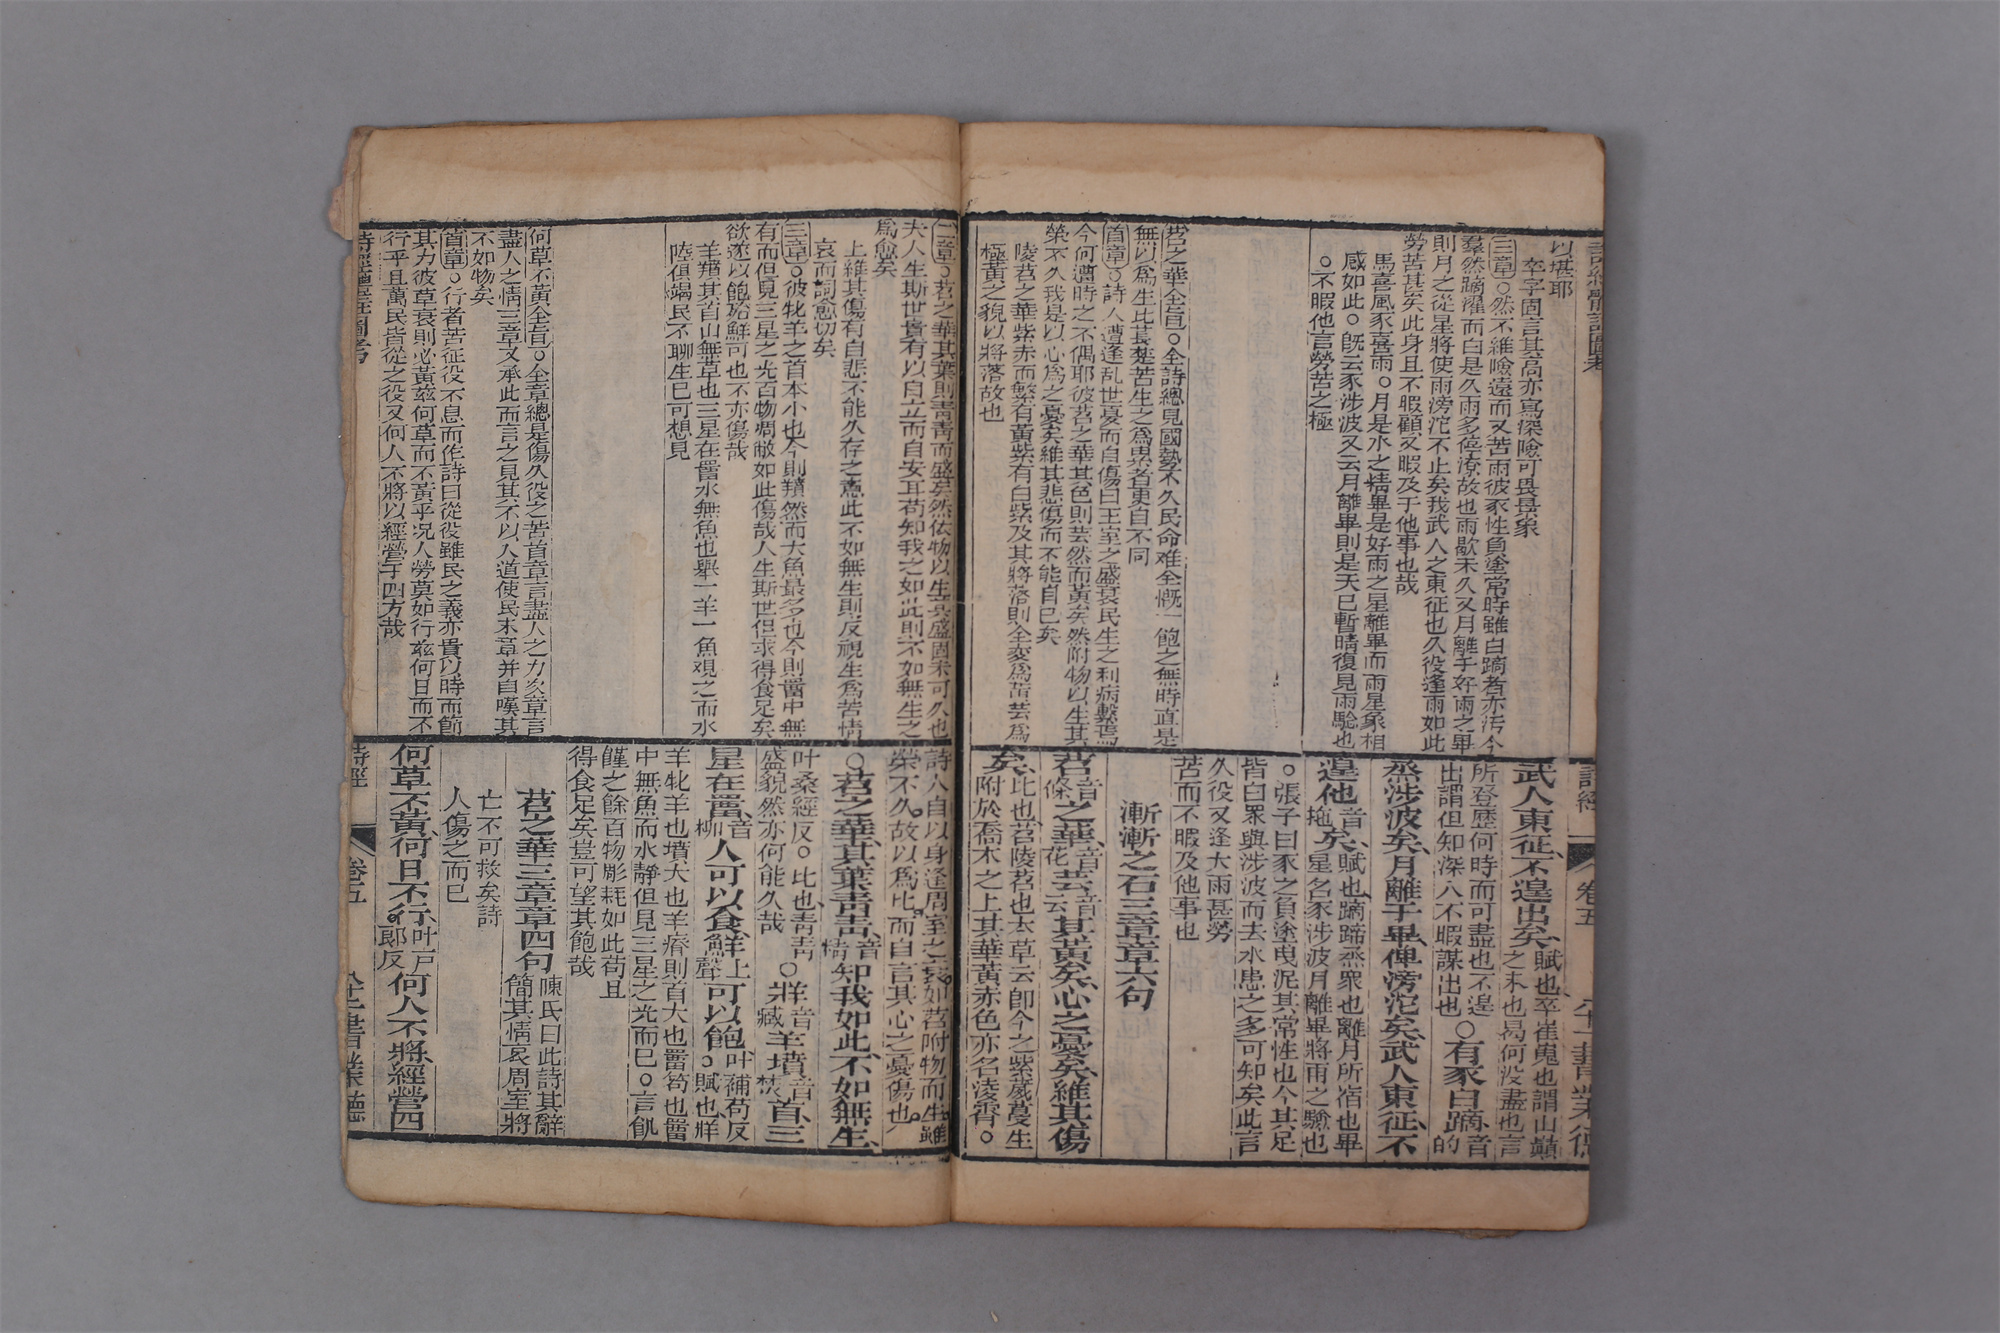 以堪耶
卒字固言其高亦寫深險可畏景象
三章○然不維險遠而又苦雨彼豕性負塗常時雖白蹢者亦污今
羣然蹢濯而白是久雨多停潦故也雨歇未久又月離于好雨之畢
則月之從星將使雨滂沱不止矣我武人之東征也久役逢雨如此
勞苦甚矣此身且不暇顧又暇及于他事也哉
馬喜風豕喜雨○月是水之情畢是好雨之星離畢而雨星象相
感如此○既云豕涉波又云月離畢則是天已暫晴復見雨驗也
○不暇他言勞苦之極
苕之華全旨○全詩總見國勢不久民命难全慨一飽之無時直是
無以爲生比萇楚苦生之爲累者更自不同
首章○詩人遭逢乱世憂而自傷曰王室之盛衰民生之利病繫焉
今何遭時之不偶耶彼苕之華其色則芸然而黃矣然附物以生其
榮不久我是以心爲之憂矣維其悲傷而不能自已矣
陵苕之華紫赤而繁有黃紫有白紫及其將落則全变爲黃芸爲
極黃之貌以將落故也
武人東征不遑出矣賦也卒崔嵬也謂山巔
之末也曷何没盡也言
所登歷何時而可盡也不遑
出謂但知深入不暇謀出也○有豕白蹢音
的
烝涉波矣月離于畢俾滂沱矣武人東征不
遑他音
拖矣賦也蹢蹄烝衆也離月所宿也畢
星名豕涉波月離畢將雨之驗也
○張子曰豕之負塗曳泥其常性也今其足
皆白衆與涉波而去水患之多可知矣此言
久役又逢大雨甚勞
苦而不暇及他事也
漸漸之石三章章六句
苕音
條之華音
花芸音
云其黃矣心之憂矣維其傷
矣比也苕陵苕也本草云即今之紫葳蔓生
附於喬木之上其華黃赤色亦名凌霄○
二章○苕之華其葉則青青而盛矣然依物以生其盛固未可久也
夫人生斯世貴有以自立而自安耳苟知我之如此則不如無生之
爲愈矣
上維其傷有自悲不能久存之意此不如無生則反視生爲苦情
哀而詞愈切矣
三章○彼牝羊之首本小也今則羵然而大魚最多也今則罶中無
有而但見三星之光百物凋敝如此傷哉人生斯世但求得食足矣
欲遂以飽殆鮮可也不亦傷哉
羊羵其首山無草也三星在罶水無魚也舉一羊一魚观之而水
陸俱竭民不聊生已可想見
何草不黃全旨○全章總是傷久役之苦首章言盡人之力次章言
盡人之情三章又承此而言之見其不以人道使民末章并自嘆其
不如物矣
首章○行者苦征役不息而作詩曰從役雖民之義亦貴以時而節
其力彼草衰則必黃茲何草而不黃乎况人勞莫如行兹何日而不
行乎且萬民皆從之役又何人不將以經營于四方哉
詩人自以身逢周室之衰如苕附物而生雖
榮不久故以爲比而自言其心之憂傷也
○苕之華其葉青青音
情知我如此不如無生
叶桑經反○比也青青
盛貌然亦何能久哉○牂音
臧羊墳音
焚首三
星在罶音
柳人可以食鮮上
聲可以飽叶補苟反
○賦也牂
羊牝羊也墳大也羊瘠則首大也罶笱也罶
中無魚而水靜但見三星之光而已○言飢
饉之餘百物彫耗如此苟且
得食足矣豈可望其飽哉
苕之華三章章四句陳氏曰此詩其辭
簡其情哀周室將
亡不可救矣詩
人傷之而已
何草不黃何日不行叶戶
郎反何人不將經營四
詩經
卷五